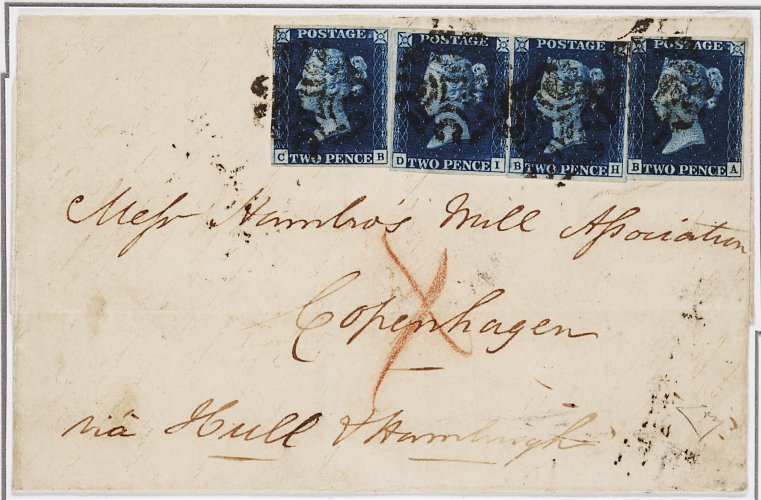 POSTAGE POSTAGE POSTAGE POSTAGE
C TWO PENCE B D TWO PENCE I B TWO PENCE H B TWO PENCE A
Messr Hambro's Mill Association
Copenhagen
viâ Hull & Hamburgh